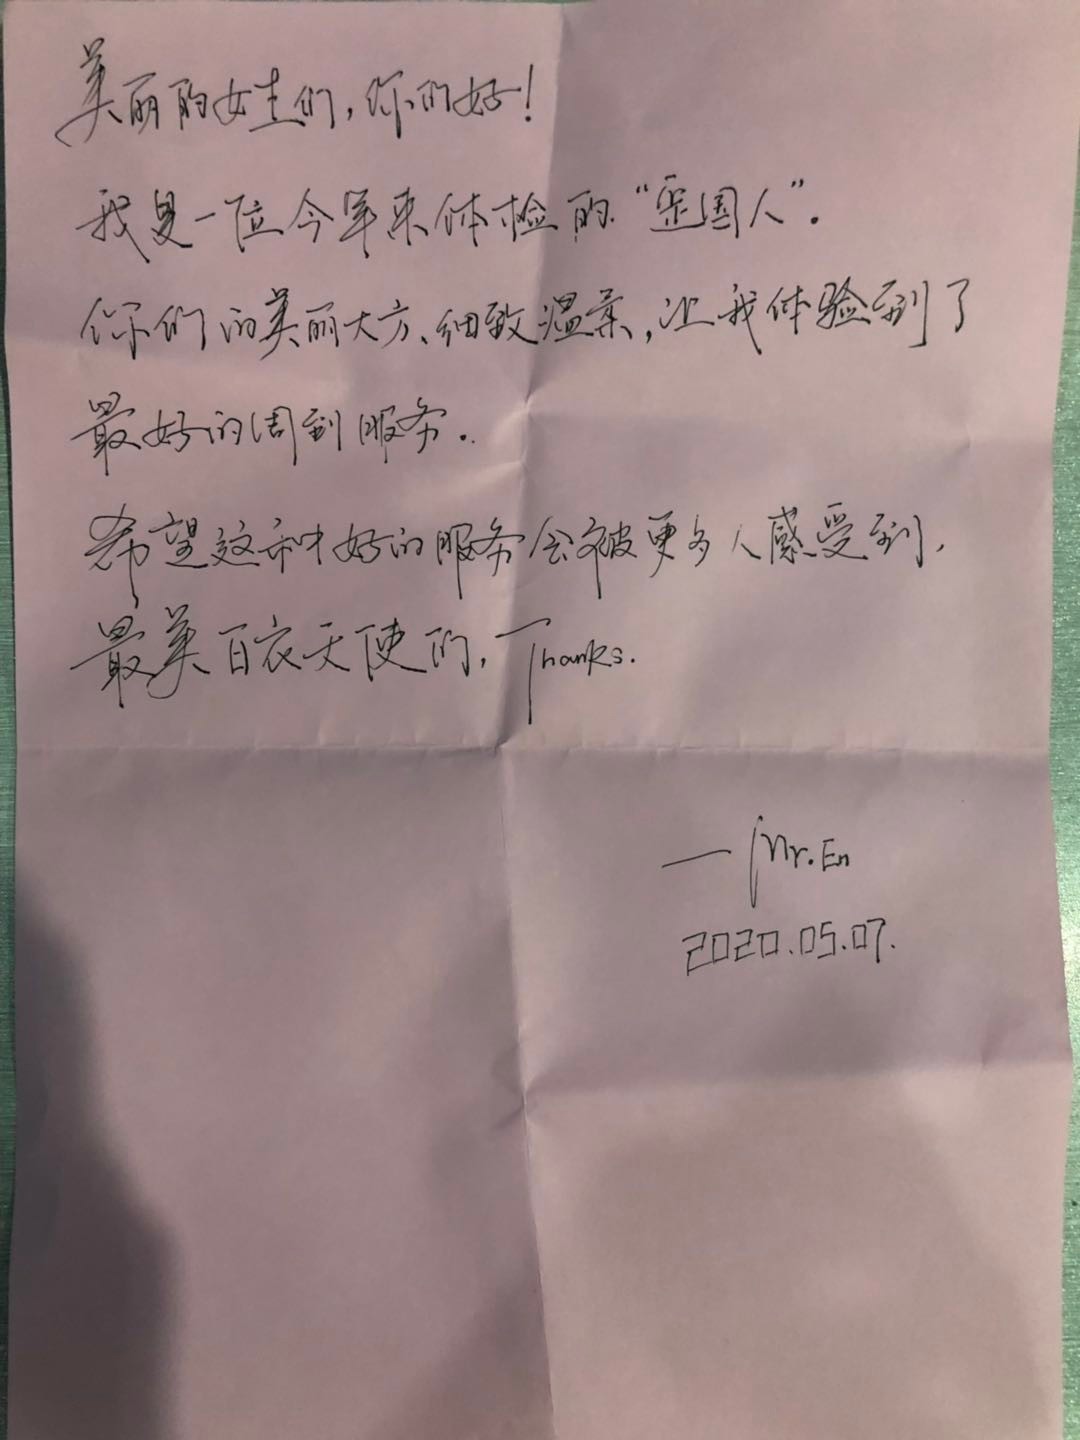 美丽的女生们，你们好！
我是一位今年来体检的“歪国人”.
你们的美丽大方、细致温柔，让我体验到了
最好的周到服务.
希望这种好的服务会被更多人感受到，
最美白衣天使们，Thanks.
— Mr. En
2020.05.07.